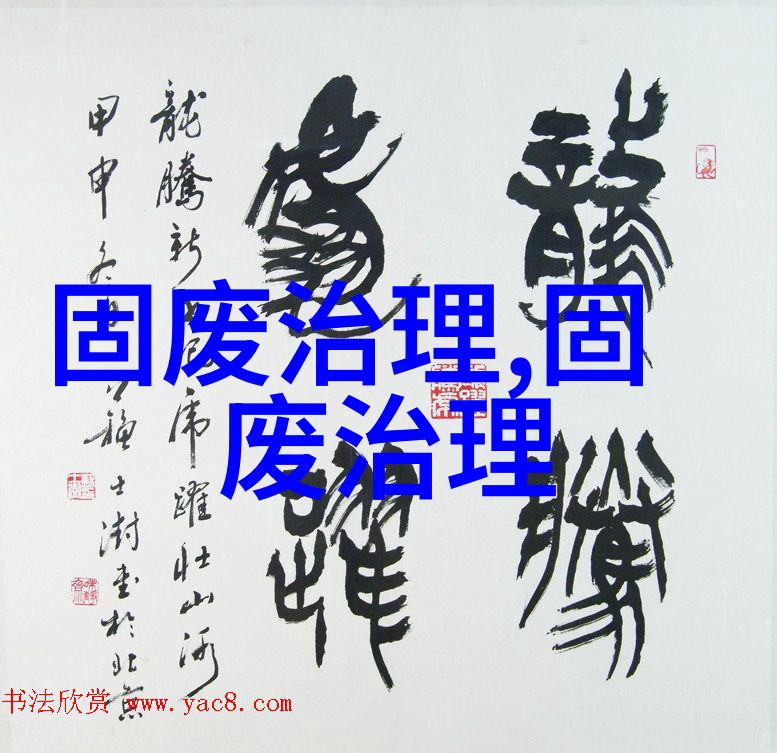 龍騰
虎躍
龍騰新虎躍壯山河
甲申冬月士澍書於北京
固废治理,固
废治理
书法欣赏 www.yac8.com